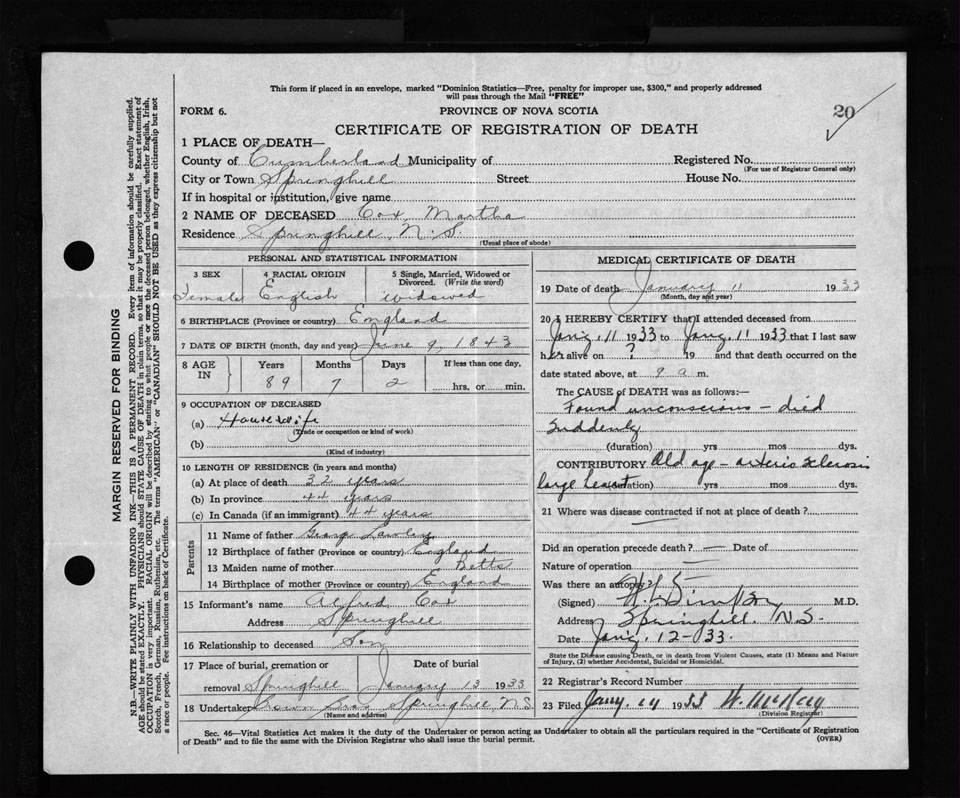 This form if placed in an envelope, marked "Dominion Statistics—Free, penalty for improper use, $300," and properly addressed
will pass through the Mail "FREE"
FORM 6.
PROVINCE OF NOVA SCOTIA
20
CERTIFICATE OF REGISTRATION OF DEATH
1 PLACE OF DEATH—
County of Cumberland Municipality of
Registered No.
(For use of Registrar General only)
City or Town Springhill Street House No.
If in hospital or institution, give name
2 NAME OF DECEASED Cox, Martha
Residence Springhill, N.S.
(Usual place of abode)
PERSONAL AND STATISTICAL INFORMATION
3 SEX
Female
4 RACIAL ORIGIN
English
5 Single, Married, Widowed or
Divorced. (Write the word)
widowed
6 BIRTHPLACE (Province or country) England
7 DATE OF BIRTH (month, day and year) June 9, 1843
8 AGE
IN
Years
89
Months
7
Days
2
If less than one day,
hrs. or min.
9 OCCUPATION OF DECEASED
(a) Housewife
(Trade or occupation or kind of work)
(b)
(Kind of industry)
10 LENGTH OF RESIDENCE (in years and months)
(a) At place of death 32 years
(b) In province 44 years
(c) In Canada (if an immigrant) 44 years
Parents
11 Name of father George
12 Birthplace of father (Province or country) England
13 Maiden name of mother Betts
14 Birthplace of mother (Province or country) England
15 Informant's name Alfred Cox
Address Springhill
16 Relationship to deceased Son
17 Place of burial, cremation or
removal Springhill
Date of burial
January 13 1933
18 Undertaker Brown Bros Springhill N S
(Name and address)
MEDICAL CERTIFICATE OF DEATH
19 Date of death January 11 1933
(Month, day and year)
20 I HEREBY CERTIFY that I attended deceased from
Jany. 11 1933 to Jany. 11 1933 that I last saw
her alive on ? 19 and that death occurred on the
date stated above, at 9 a m.
The CAUSE of DEATH was as follows:—
Found unconscious — died
suddenly
(duration) yrs mos. dys.
CONTRIBUTORY Old age — arterio sclerosis
large heart (duration) yrs mos. dys.
21 Where was disease contracted if not at place of death?
Did an operation precede death? — Date of
Nature of operation —
Was there an autopsy
(Signed) M.D.
Address Springhill. N.S.
Date Jany. 12-33.
State the Disease causing Death, or in death from Violent Causes, state (1) Means and Nature
of Injury, (2) whether Accidental, Suicidal or Homicidal.
22 Registrar's Record Number
23 Filed Jany. 14 1933 W. McKay
(Division Registrar)
Sec. 46—Vital Statistics Act makes it the duty of the Undertaker or person acting as Undertaker to obtain all the particulars required in the "Certificate of Registration
of Death" and to file the same with the Division Registrar who shall issue the burial permit.
(OVER)
MARGIN RESERVED FOR BINDING
N.B.—WRITE PLAINLY WITH UNFADING INK—THIS IS A PERMANENT RECORD. Every item of information should be carefully supplied.
AGE should be stated EXACTLY. PHYSICIANS should STATE CAUSE OF DEATH in plain terms, so that it may be properly classified. Exact statement of
OCCUPATION is very important. RACIAL ORIGIN will be described by stating to what people or race the deceased person belonged, whether English, Irish,
Scotch, French, German, Russian, Ruthenian, etc. The terms "AMERICAN" or "CANADIAN" SHOULD NOT BE USED as they express citizenship but not
a race or people. See instructions on back of Certificate.